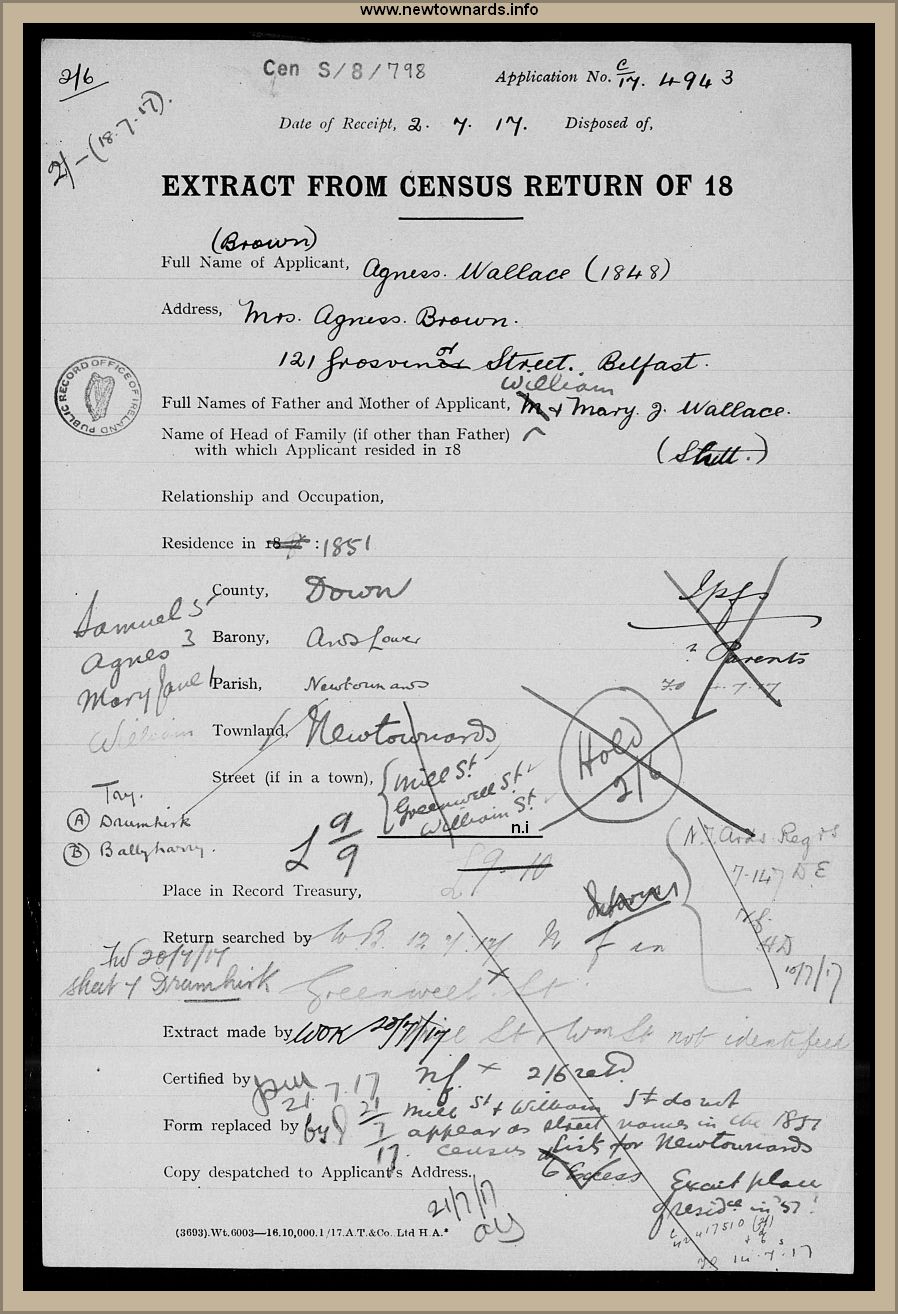 www.newtownards.info
2/6
Cen S/8/798
Application No. C/17. 4943
2/- (18.7.17).
Date of Receipt, 2. 7. 17. Disposed of,
EXTRACT FROM CENSUS RETURN OF 18
(Brown)
Full Name of Applicant, Agness. Wallace (1848)
Address, Mrs. Agness. Brown.
121 Grosvenor Street. Belfast.
PUBLIC RECORD OFFICE OF IRELAND
William
Full Names of Father and Mother of Applicant, M & Mary. J. Wallace.
Name of Head of Family (if other than Father)
with which Applicant resided in 18
(Stitt.)
Relationship and Occupation,
Residence in 18 : 1851
County, Down
Samuel 5
Barony, Ards Lower
Agnes 3
? Parents
Parish, Newtownards
4.7.17
Mary Jane 1
William
Townland, Newtownards
Hold
2/6
Street (if in a town), Mill St
Greenwell St.
William St.
n.i
Try.
(A) Drumhirk
(B) Ballyharry.
£ 9/9
£9.10
N.T. Ards Reg rs
7-147 D.E
Place in Record Treasury,
Return searched by W.B. 12 7/17
10/7/17
20/7/17
Sheet of Drumhirk
Greenwell St
Extract made by WOK 20/7/17 Mill St & Wm St not identified
Certified by
21.7.17
n.f. x 2/6 retd.
Form replaced by
21/7/17
Mill St & William St do not
appear as street names in the 1851
census lists for Newtownards
Copy despatched to Applicant's Address,
Excess
Exact place
residce in '51?
21/7/17
(3693).Wt.6003—16.10,000.1/17.A.T.&Co. Ltd H.A.
14.7.17